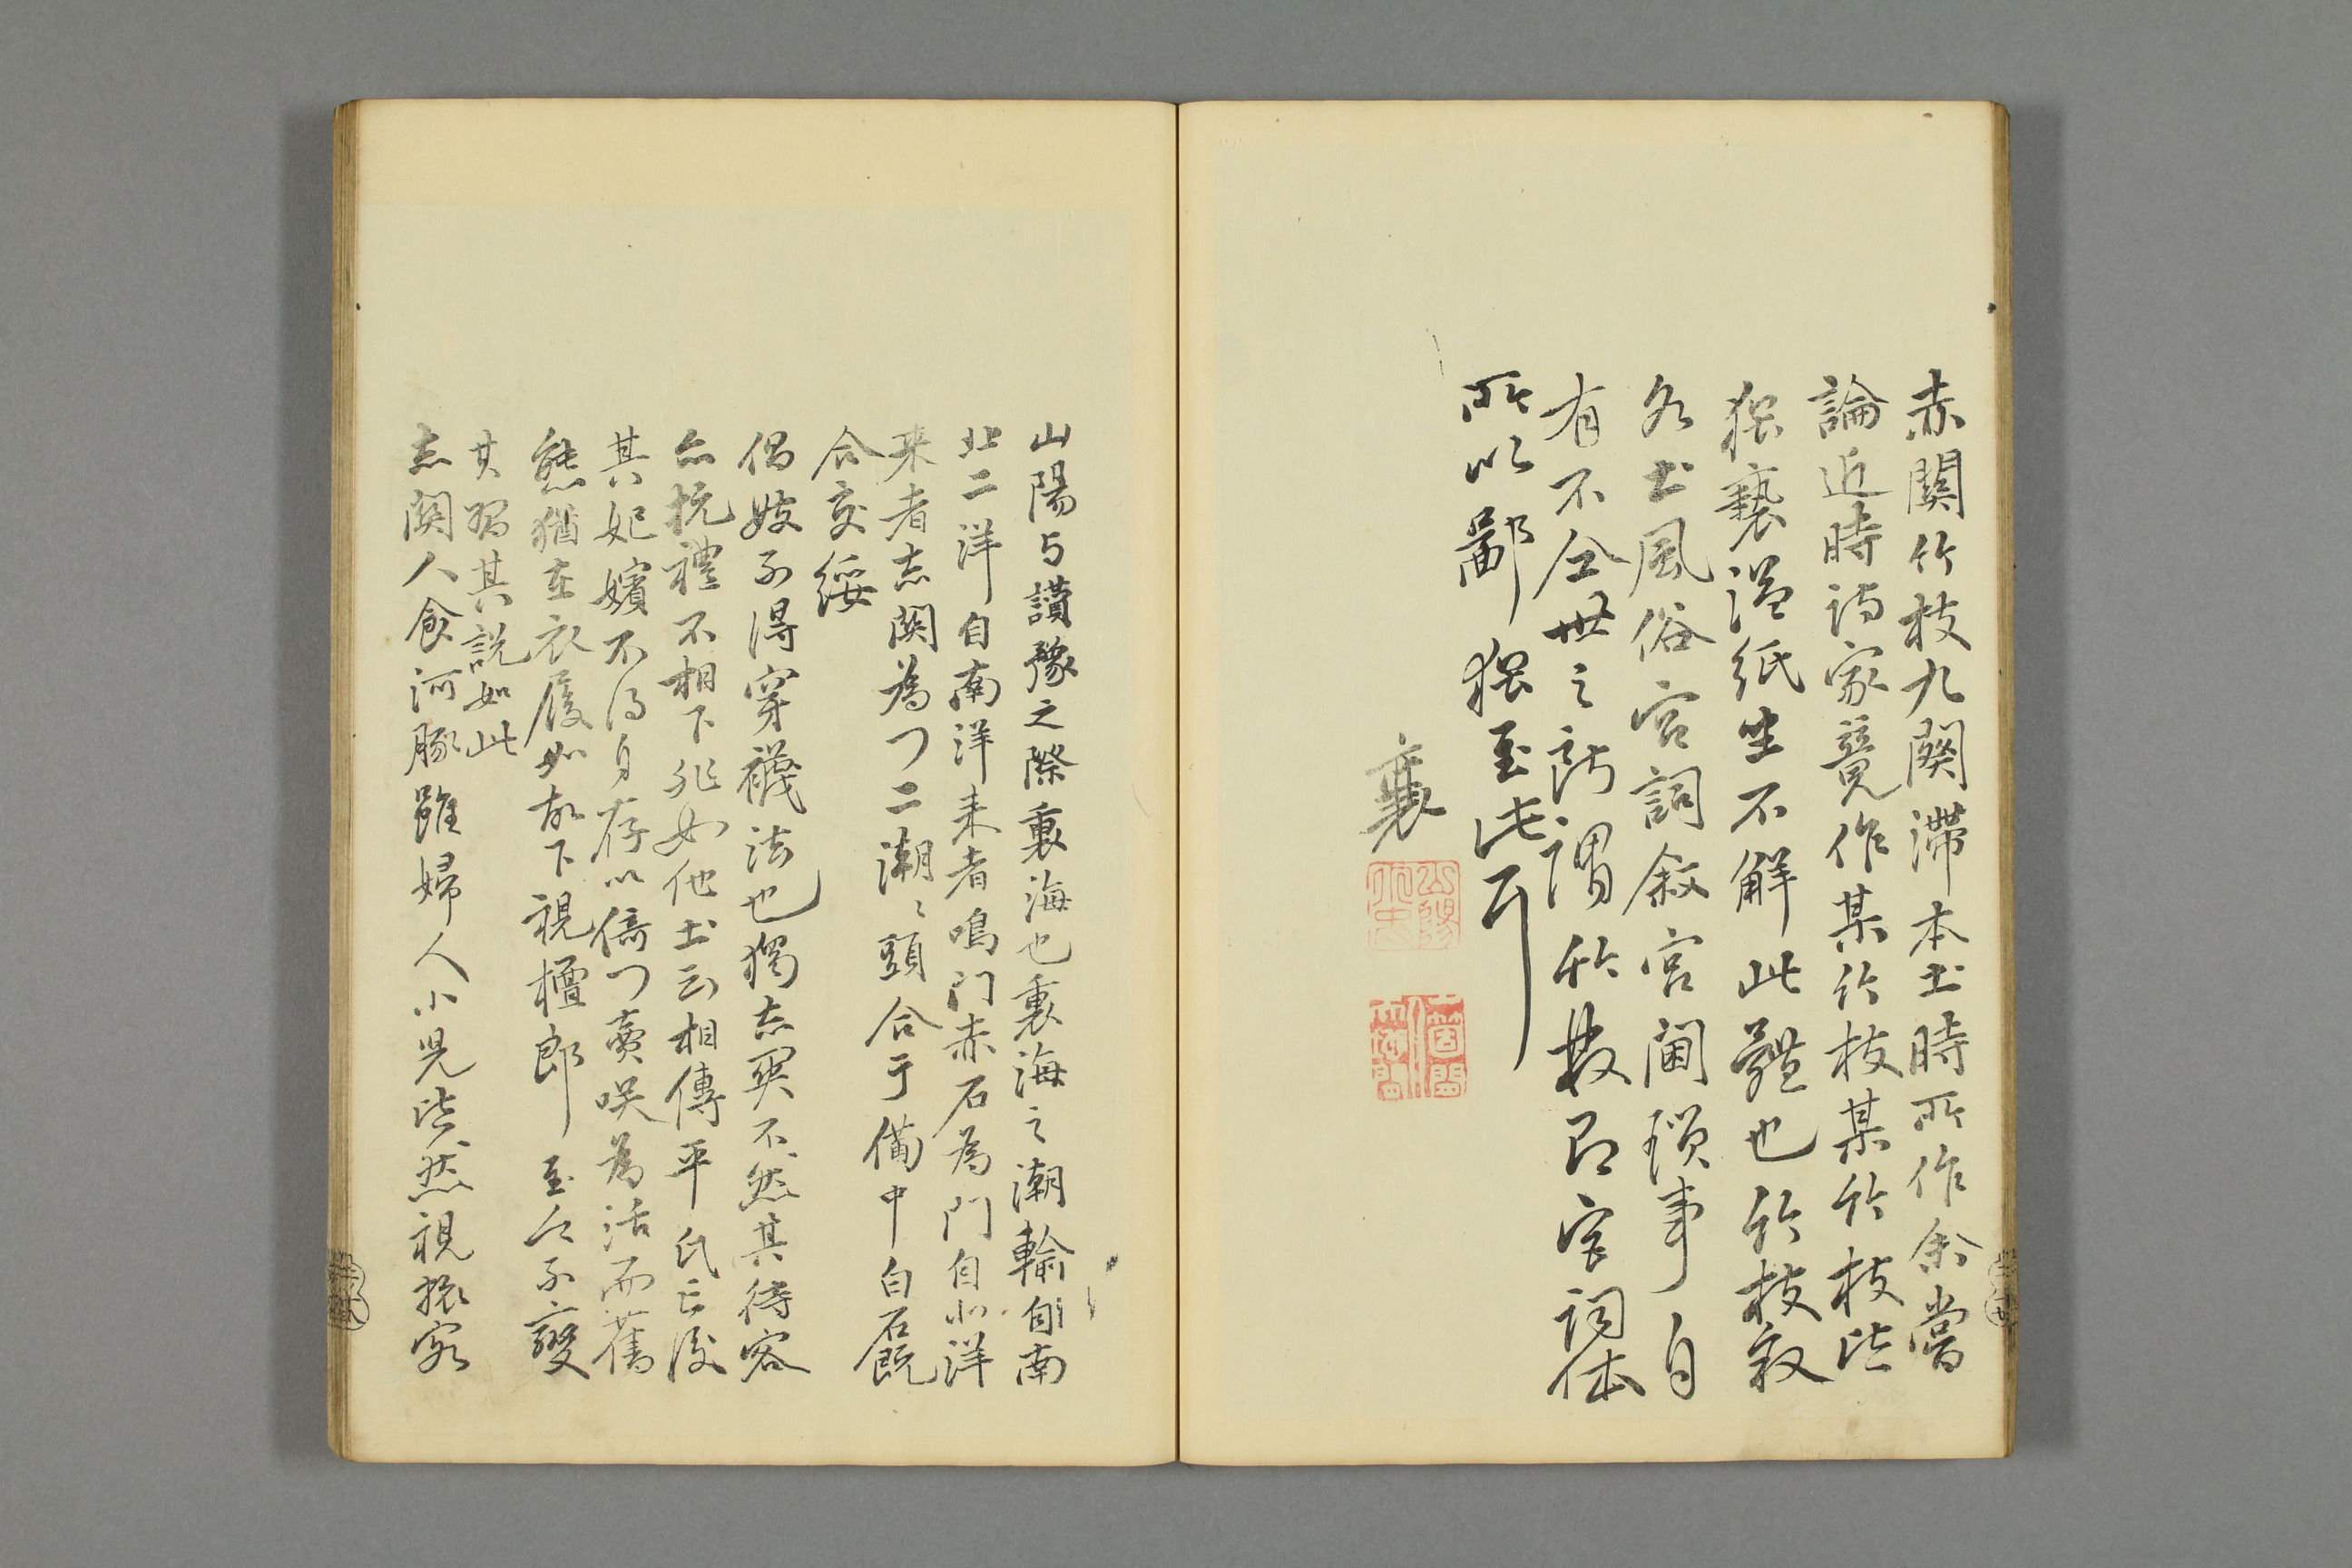 赤関竹枝九闋滞本土時所作余嘗
論近時詩家競作某竹枝某竹枝皆
猥褻溢紙坐不解此體也竹枝叙
名土風俗宮詞叙宮閫瑣事自
有不今世之所謂竹枝即宮詞体
所以鄙猥至此耳
襄
山陽与讃豫之際裏海也裏海之潮輸自南
北二洋自南洋来者鳴门赤石為門自北洋
来者赤関為门二潮々頭合于備中白石既
合交綏
倡妓不得穿襪法也獨赤関不然其待客
亦抗禮不相下非如他土云相傳平氏亡後
其妃嬪不得自存以倚门賣咲為活而舊
態猶在衣履如故下視檀郎至今不變
其習其説如此
赤関人食河豚雖婦人小児皆然視振客